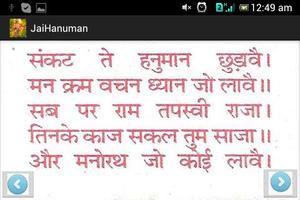 12:49 am
JaiHanuman
संकट ते हनुमान छुड़ावै।
मन क्रम वचन ध्यान जो लावै।।
सब पर राम तपस्वी राजा।
तिनके काज सकल तुम साजा।।
और मनोरथ जो कोई लावै।